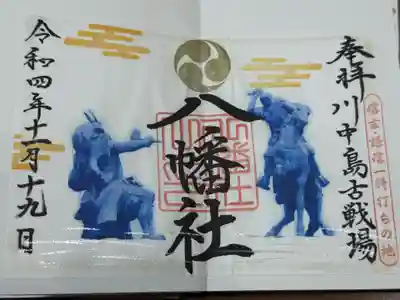 奉拝川中島古戦場
信玄・謙信一騎打ちの地
八幡社
令和四年十一月十九日